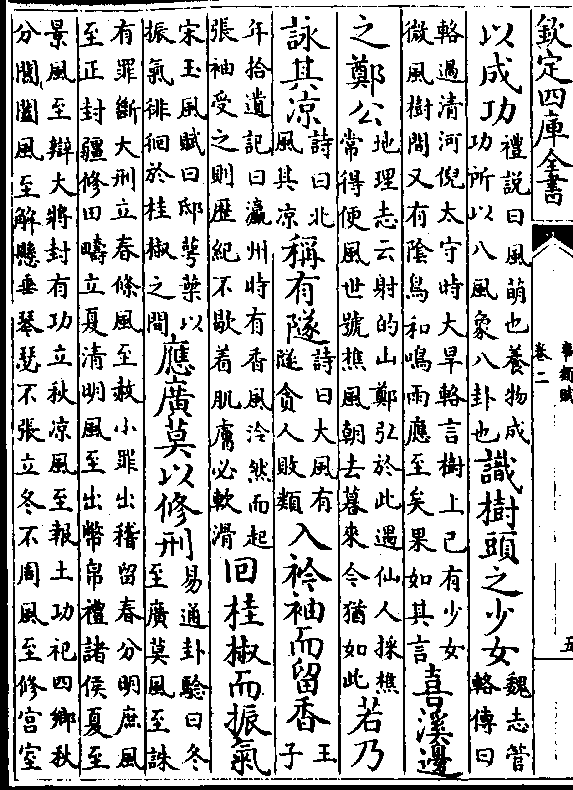 欽定四庫全書
事類賦
卷二
五
以成功禮說曰風萌也養物成功所以八風象八卦也識樹頭之少女魏志管輅傳曰
輅過清河倪太守時大旱輅言樹上已有少女微風樹間又有陰鳥和鳴雨應至矣果如其言喜溪邊
之鄭公地理志云射的山鄭弘於此遇仙人採樵常得便風世號樵風朝去暮來今猶如此若乃
詠其凉詩曰北風其凉稱有隧詩曰大風有隧貪人敗類入衿袖而留香王子
年拾遺記曰瀛州時有香風泠然而起張袖受之則歷紀不歇着肌膚必軟滑回桂椒而振氣
宋玉風賦曰邸萼葉以振氣徘徊於桂椒之間應廣莫以修刑易通卦驗曰冬至廣莫風至誅
有罪斷大刑立春條風至赦小罪出稽留春分明庶風至正封疆修田疇立夏清明風至出幣帛禮諸侯夏至
景風至辯大將封有功立秋凉風至報土功祀四鄉秋分閶闔風至解懸垂琴瑟不張立冬不周風至修宫室